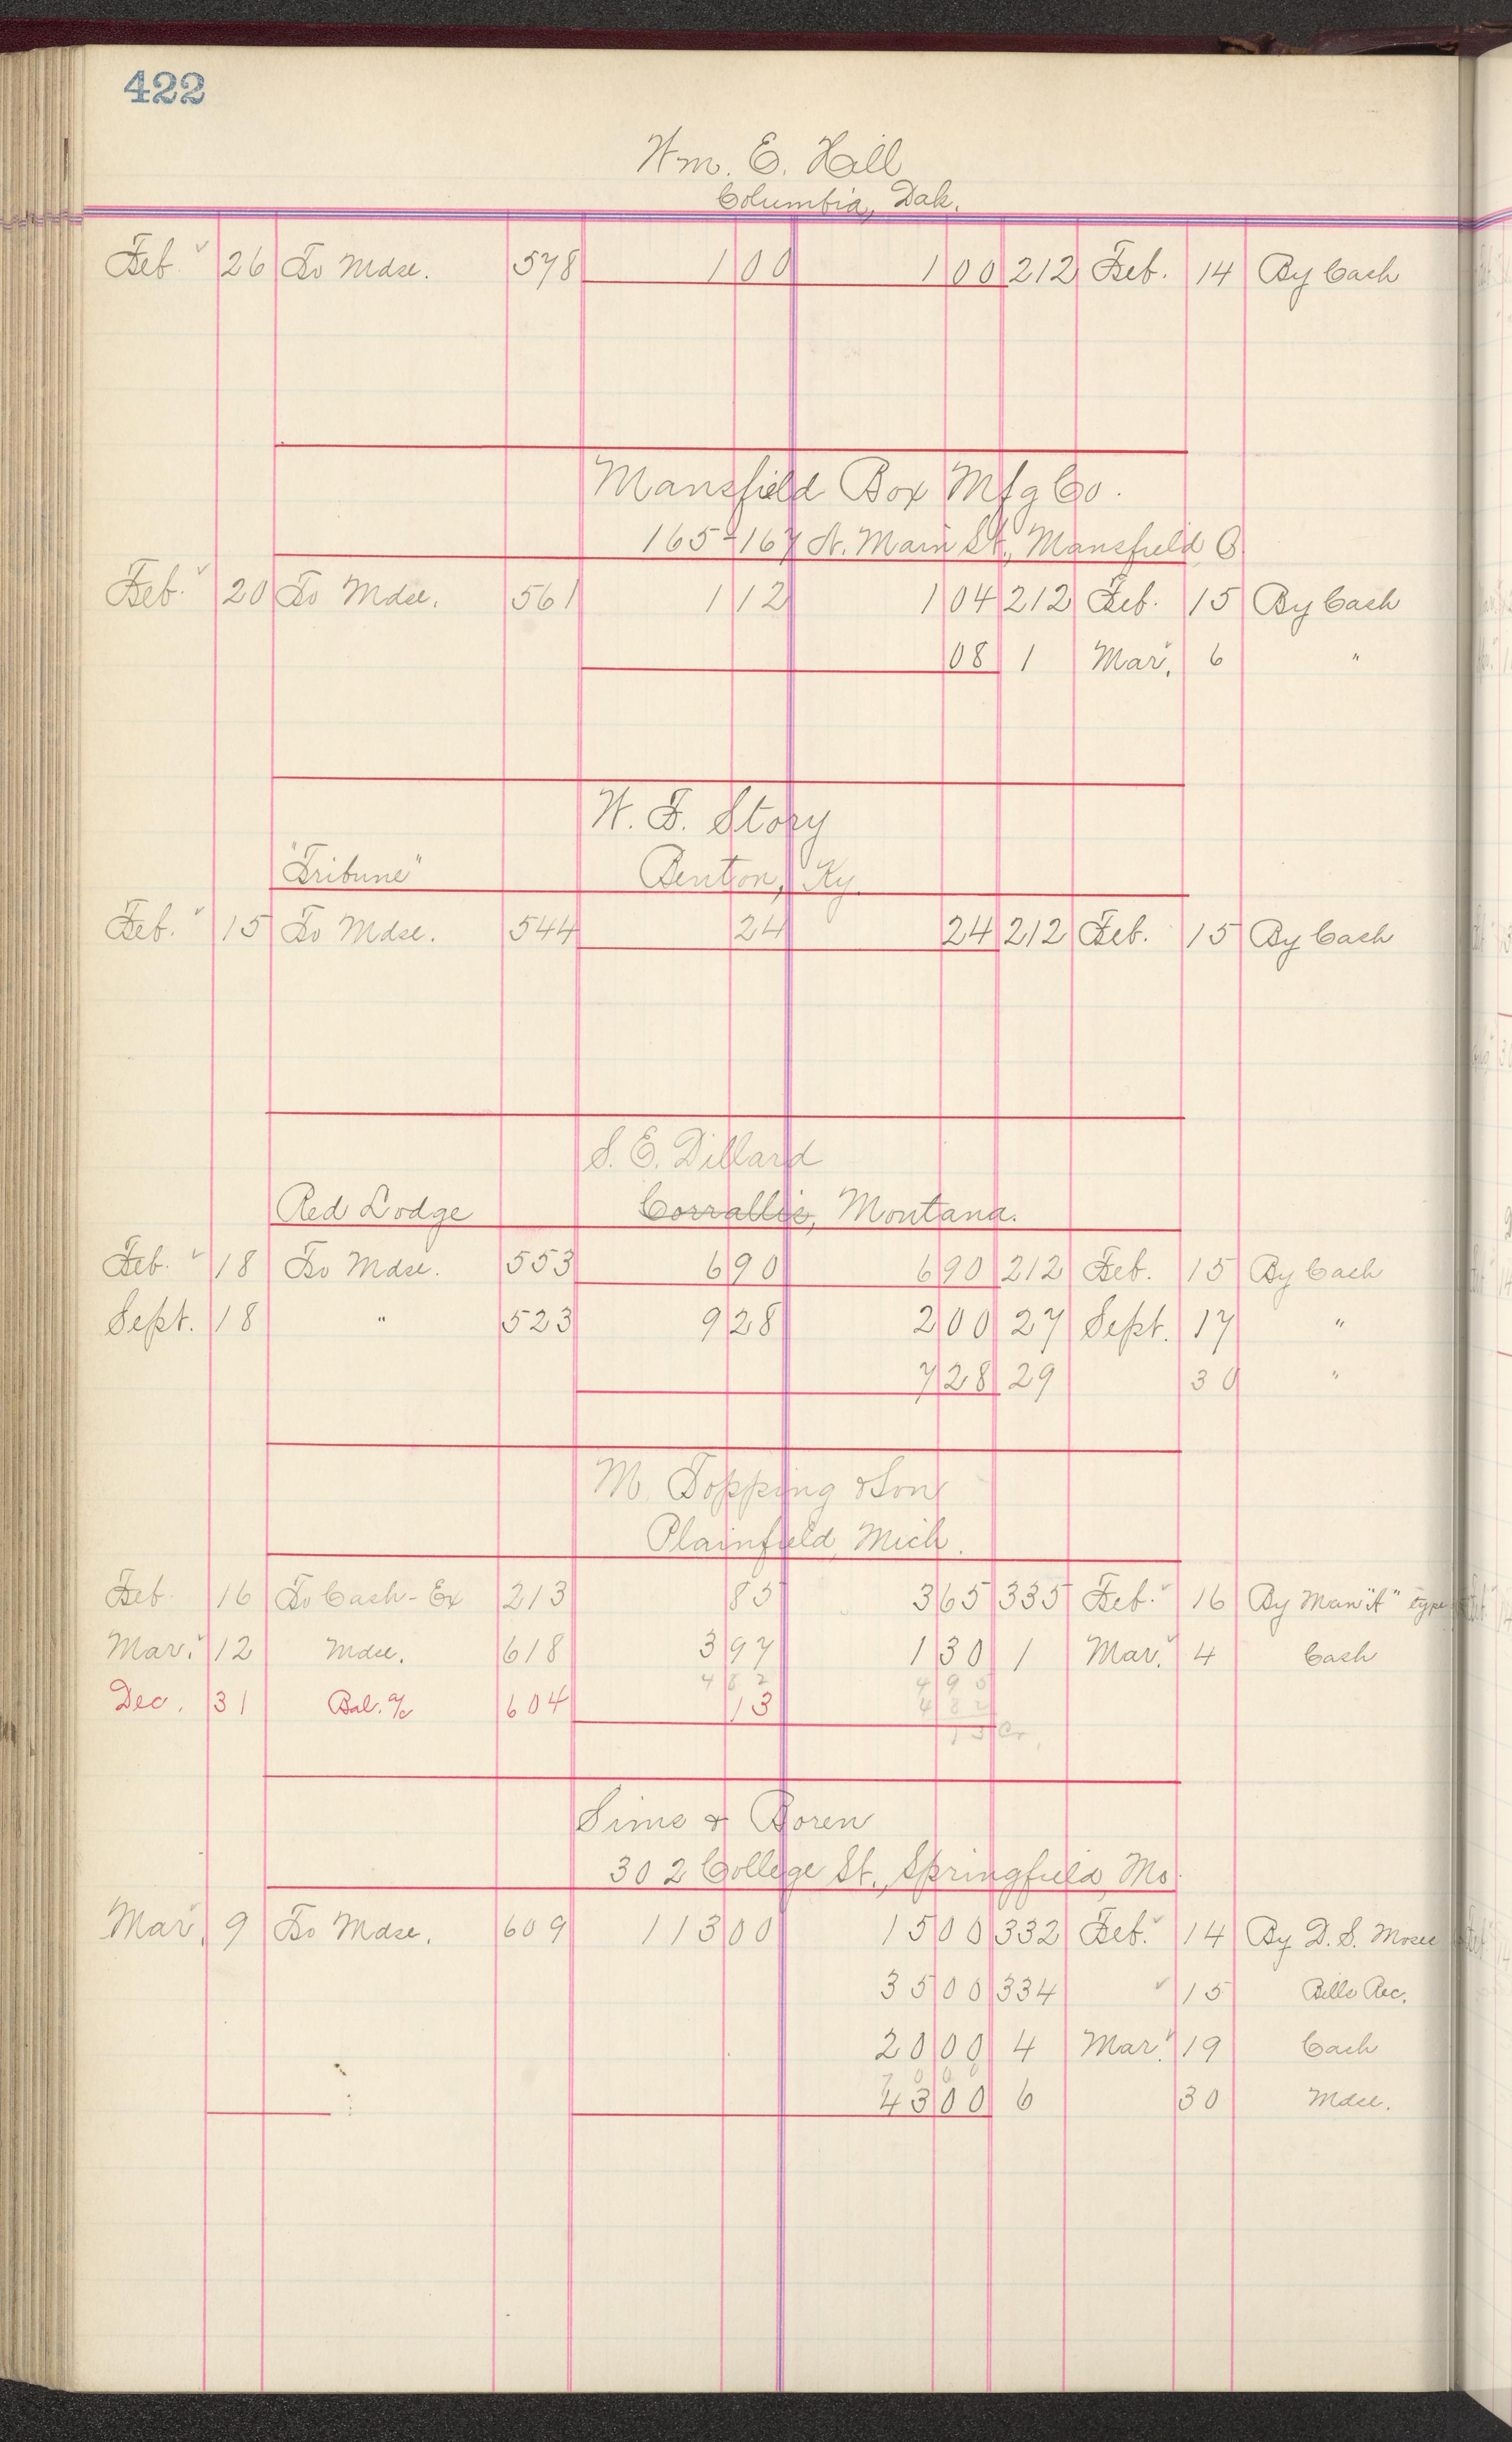 422
Wm. E. Hall
Columbia, Dak.
Feb. 26 To Mdse. 578 1 00 1 00 212 Feb. 14 By Cash
Mansfield Box Mfg Co.
165-167 N. Main St., Mansfield O.
Feb. 20 To Mdse. 561 1 12 1 04 212 Feb. 15 By Cash
08 1 Mar. 6 "
W. F. Story
"Tribune" Benton, Ky.
Feb. 15 To Mdse. 544 24 24 212 Feb. 15 By Cash
S. E. Dillard
Red Lodge Corrallis, Montana.
Feb. 18 To Mdse. 553 6 90 6 90 212 Feb. 15 By Cash
Sept. 18 " 523 9 28 2 00 27 Sept. 17 "
7 28 29 30 "
M. Topping & Son
Plainfield, Mich.
Feb. 16 To Cash-Ex 213 85 3 65 335 Feb. 16 By Man "A" type
Mar. 12 Mdse. 618 3 97 1 30 1 Mar. 4 Cash
4 82 4 95
Dec. 31 Bal. a/c 604 13 4 82
13 Cr.
Sims & Boren
302 College St., Springfield, Mo.
Mar. 9 To Mdse. 609 113 00 15 00 332 Feb. 14 By D. S. Mosee
35 00 334 15 Bills Rec.
20 00 4 Mar. 19 Cash
70 00
43 00 6 30 Mdse.